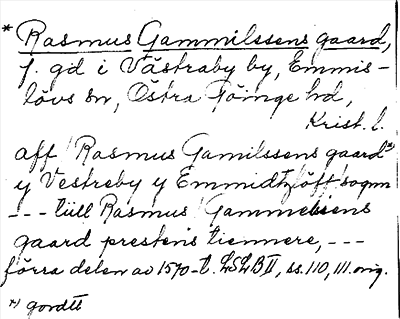 * Rasmus Gammilssens gaard,
f. gd i Västraby by, Emmis-
lövs sn, Östra Göinge hd,
Krist. l.
aff "Rasmus Gamilssens gaard*)
y Vestreby y Emmidtzlöff sogn
--- tiill Rasmus Gammelsens
gaard prestens tiennere, ---
förra delen av 1570-t. LSLB II, ss. 110, 111. orig.
*) gordtt